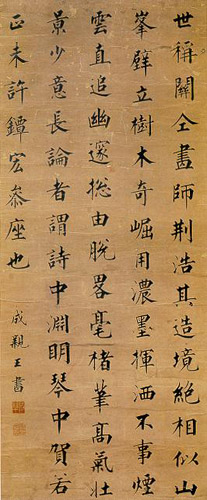 世稱關仝畫師荆浩其造境絶相似山
峯壁立樹木奇崛用濃墨揮洒不事煙
雲直追幽邃揔由脫畧毫楮筆髙氣壯
景少意長論者謂詩中淵明琴中賀若
正未許鐔宏泰座也
成親王書